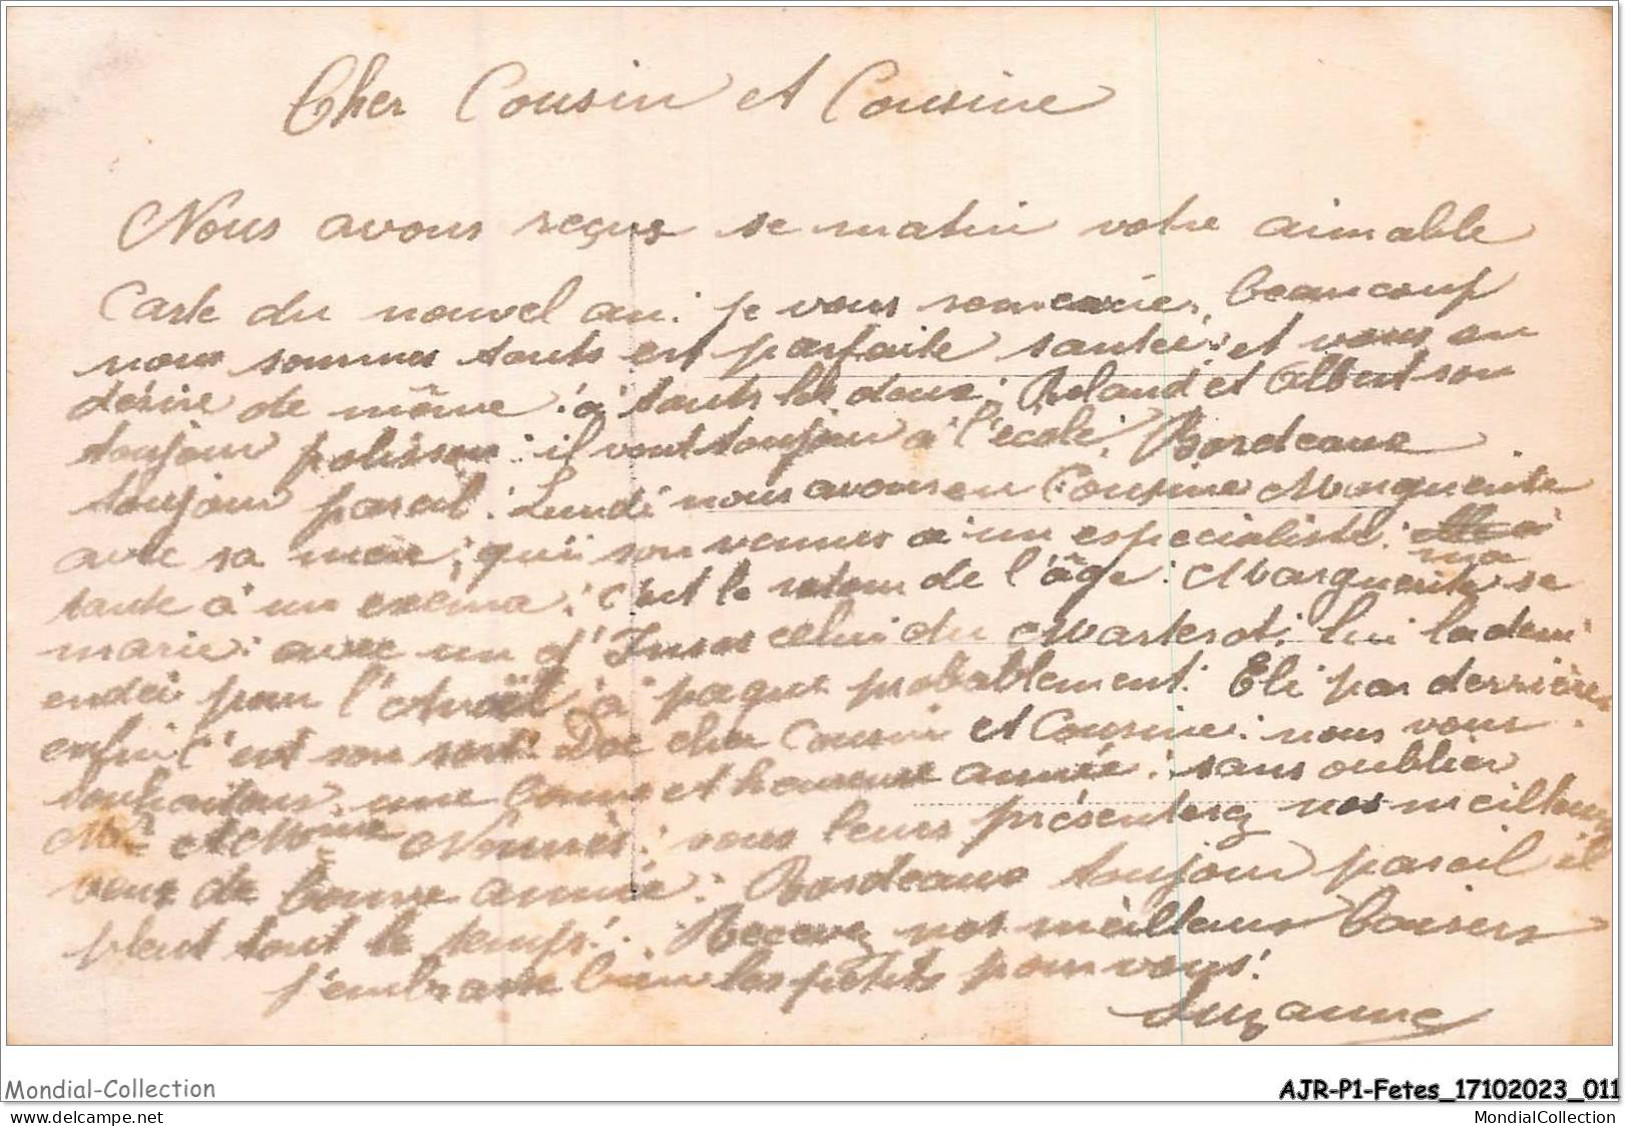 Cher Cousin et Cousine
Nous avons reçus se matin votre aimable
Carte du nouvel an: je vous remercie, beaucoup
nous sommes touts est parfaite santée: et vous en
désire de même: à touts les deux: Roland et Albert son
toujour polisson: il vont toujour à l'école, Bordeaux
toujour pareil: Lundi nous avons eu Cousine Marguerite
avec sa mère; qui son venues a un especialiste: ma
tante à un exema: c'est le retour de l'âge: Marguerite se
marie: avec un d' celui du lui la dem
endéi pour l' à paque probablement: Eli par derrière
enfin c'est son sort: Doc cher Cousin et Cousine: nous vous
souhaitons une bonne et heureuse année: sans oublier
Mr et Mme vous leurs présenterez nos meilleurs
veux de bonne année: Bordeaux toujour pareil il
pleut tout le temps: Recevez nos meilleurs baisers
j'embrasse bien les petits pour vous!
Suzanne
Mondial-Collection
AJR-P1-Fetes_17102023_011
www.delcampe.net
MondialCollection